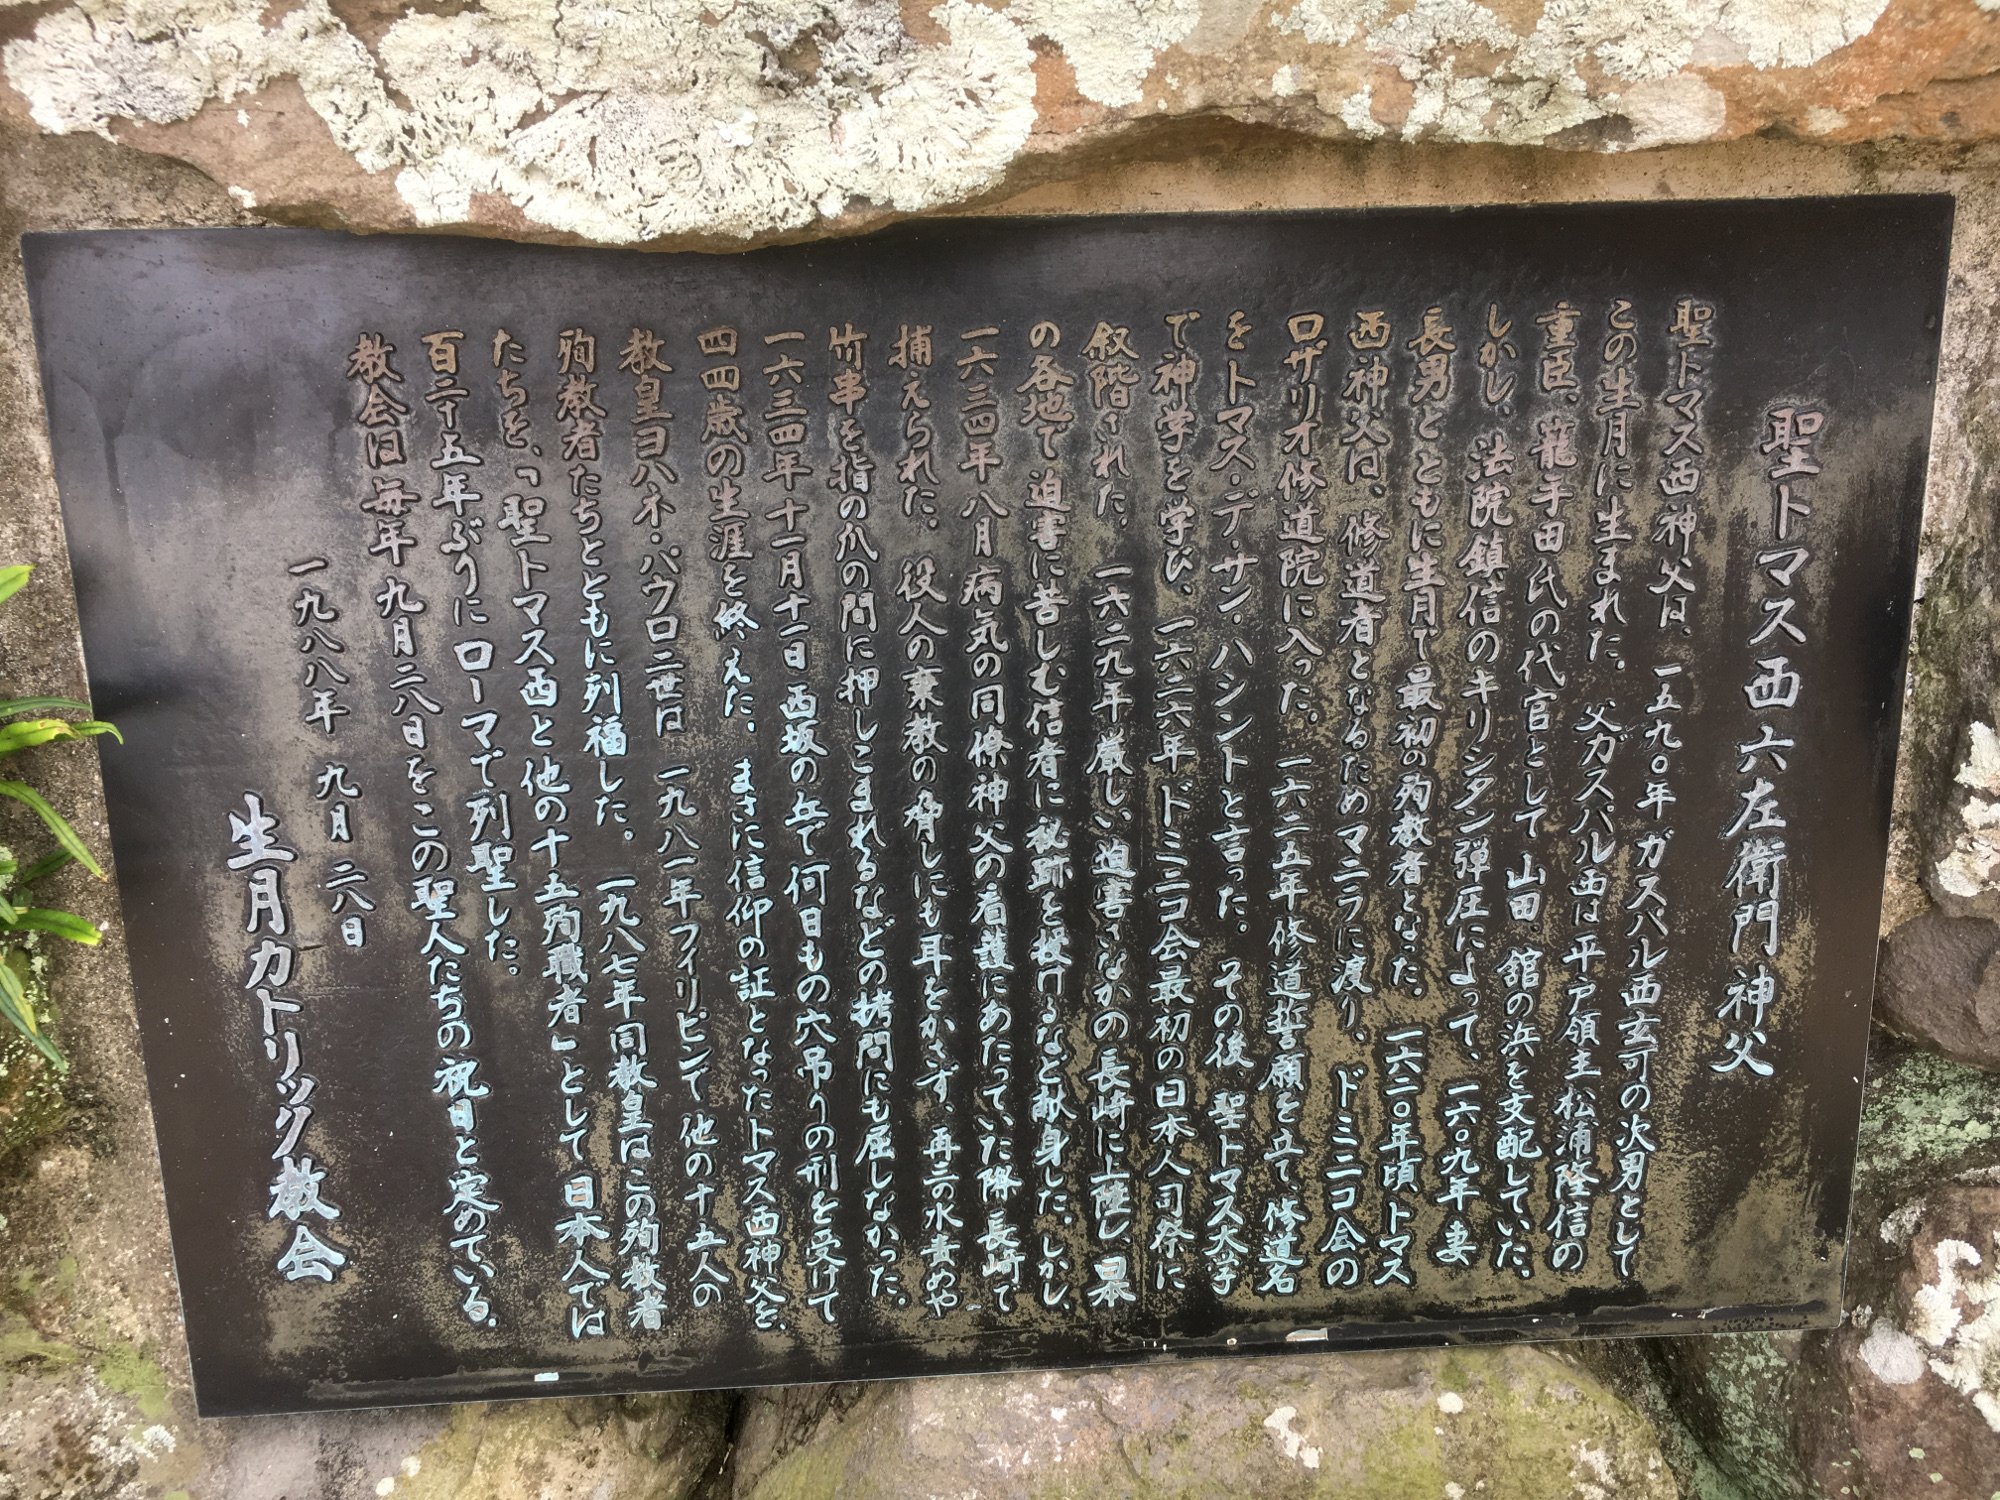 聖トマス西六左衛門神父
聖トマス西神父は、一五九〇年ガスパル西玄可の次男として
この生月に生まれた。父ガスパル西は平戸領主松浦隆信の
重臣、籠手田氏の代官として山田・舘の浜を支配していた。
しかし、法院鎮信のキリシタン弾圧によって、一六〇九年妻
長男とともに生月で最初の殉教者となった。一六二〇年頃トマス
西神父は、修道者となるためマニラに渡り、ドミニコ会の
ロザリオ修道院に入った。一六二五年修道誓願を立て、修道名
をトマス・デ・サン・ハシントと言った。その後聖トマス大学
で神学を学び、一六二六年ドミニコ会最初の日本人司祭に
叙階された。一六二九年厳しい迫害さなかの長崎に上陸し、日本
の各地で迫害に苦しむ信者に秘跡を授けるなど献身した。しかし、
一六三四年八月病気の同僚神父の看護にあたっていた際長崎で
捕えられた。役人の棄教の脅しにも耳をかさず、再三の水責めや
竹串を指の爪の間に押しこまれるなどの拷問にも屈しなかった。
一六三四年十一月十一日西坂の丘で何日もの穴吊りの刑を受けて
四四歳の生涯を終えた。まさに信仰の証となったトマス西神父を、
教皇ヨハネ・パウロ二世は一九八一年フィリピンで他の十五人の
殉教者たちとともに列福した。一九八七年同教皇はこの殉教者
たちを、「聖トマス西と他の十五殉職者」として日本人では
百二十五年ぶりにローマで列聖した。
教会は毎年九月二八日をこの聖人たちの祝日と定めている。
一九八八年 九月 二八日
生月カトリック教会